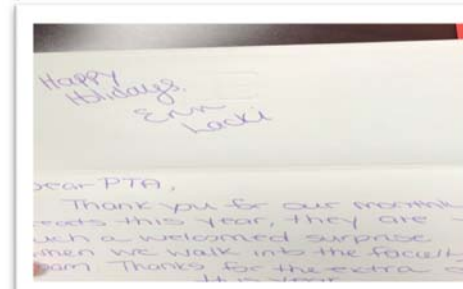 Happy
Holidays.
Erin
Lacki
Dear PTA,
Thank you for our monthl
eats this year, they are
uch a welcomed surprise
when we walk into the facult
oom. Thanks for the extra
this year